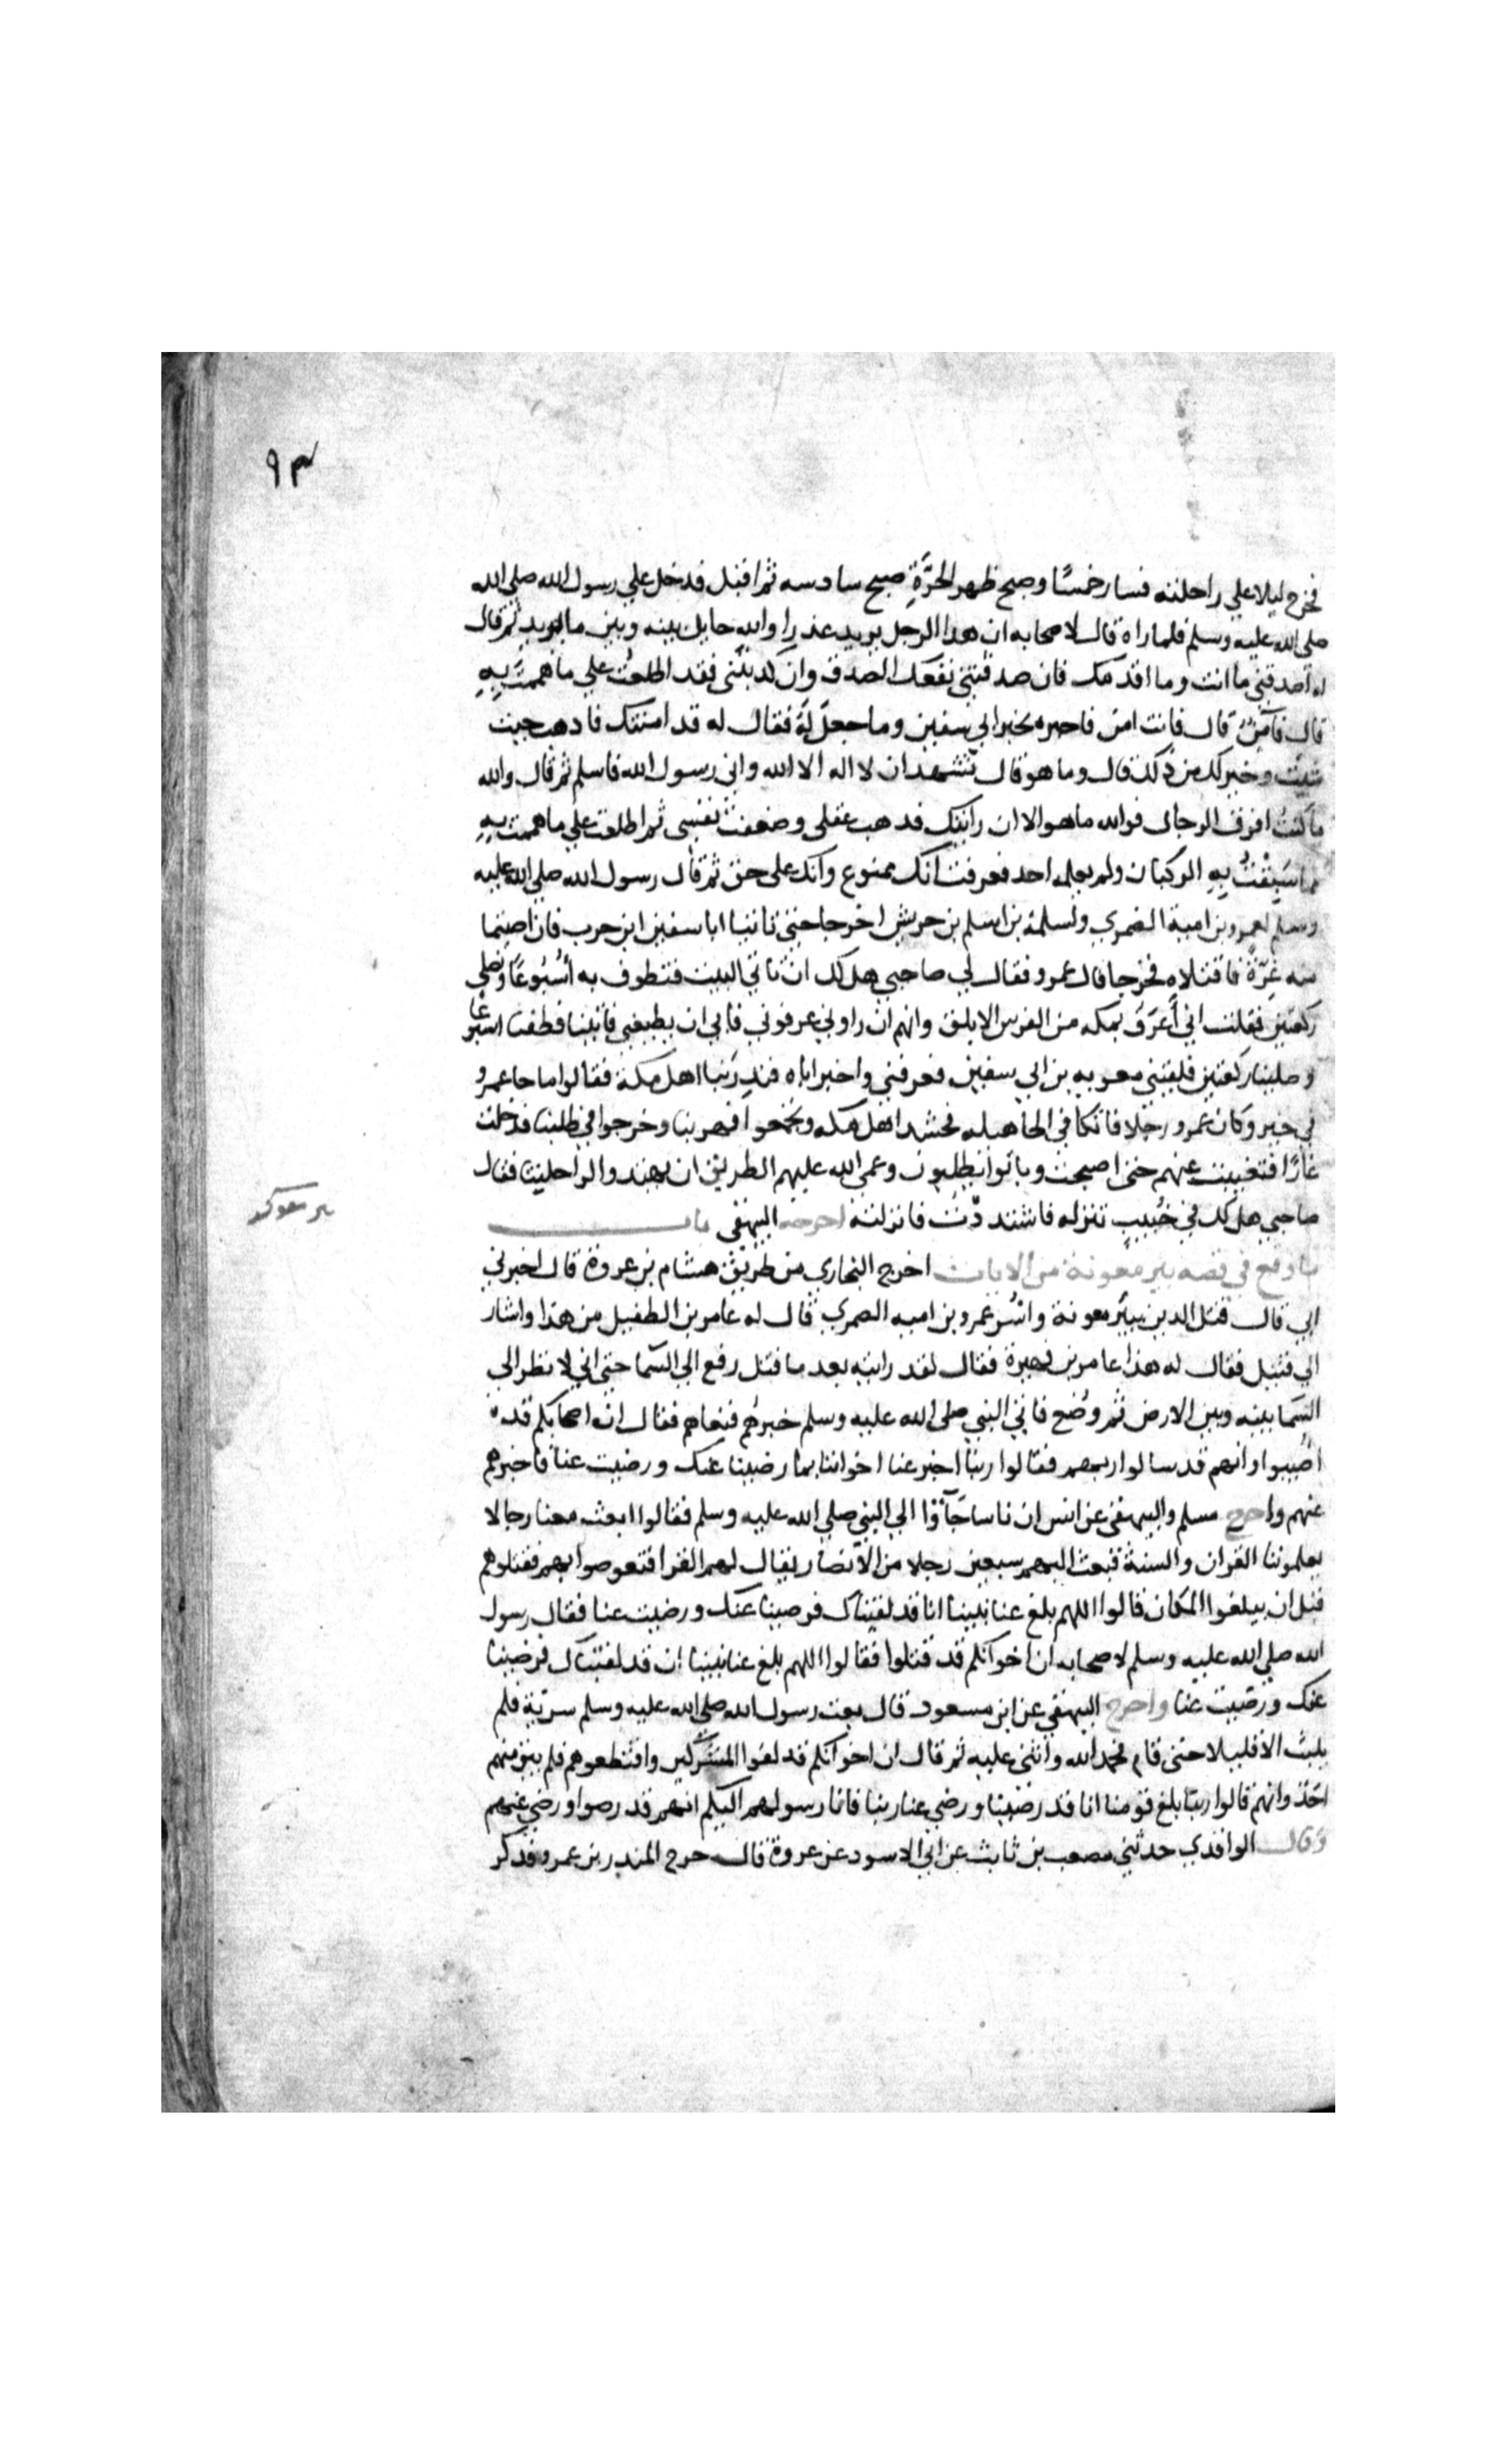 ٩٣
فخرج ليلا علي راحلته فسار خمسًا وصبح ظهر الحرَّةِ صبح سادسه ثم اقبل فدخل علي رسول الله صلي الله
صلي الله عليه وسلم فلما راه قال لاصحابه ان هدا الرجل يريد عذرا والله حايل بينه وبين ما يريد ثم قال
له اصدقني ما انت وما اقدمك فان صدقتني نفعك الصدق وان كدبتني فقد اطلعت علي ما هممت بهِ
قال فآمنٌ قال فانت امن فاخبره بخبر ابي سفين وما جعل لَهُ فقال له قد امنتك فادهب حيث
شيت وخير لك من ذلك قال وما هو قال تشهد ان لا اله الا الله واني رسول الله فاسلم ثم قال والله
ما كنت افرق الرجال فوالله ما هو الا ان رايتك فدهب عقلي وضعفت نفسي ثم اطلعت علي ما هممت بهِ
مما سَبِقْتُ بِهِ الركبان ولم يعلمه احد فعرفت انك ممنوع وانك علي حق ثم قال رسول الله صلي الله عليه
وسلم لعمرو بن امية الضمري ولسلمة بن اسلم بن حريش اخرجا حتي تاتيا ابا سفين ابن حرب فان اصبتما
منه غِرّةً فاقتلاه فخرجا قال عمرو فقال لي صاحبي هل لك ان ناتي البيت فنطوف به اُسْبُوعًا ونصلي
ركعتين فقلت اني أَعْرَفُ بمكه من الفرس الابلق وانهم ان راوني عرفوني فابي ان يطيعني فاتينا فطفنا اسبوعًا
وصلينا ركعتين فلقيني معويه بن ابي سفين فعرفني واخبر اباه فنذِرَ بنا اهل مكة فقالوا ما جا عمرو
في خير وكان عمرو رجلا فاتكا في الجاهيله فحشد اهل مكه وتجمعوا فهربنا وخرجوا في طلبنا فدخلت
غارًا فتغيبت عنهم حتى اصبحت وباتوا يطلبون وعمي الله عليهم الطريق ان يهتدوا لراحلتينا فقال
صاحبي هل لك في خُبيبٍ تنزله فاشتددتُ فانزلته اخرجه البيهقي باب
بير معونه
ما وقع في قصه بير معونة من الايات اخرج البخاري من طريق هشام بن عروة قال اخبرني
ابي قال قتل الدين ببير معونة واُسر عمرو بن اميه الضمري قال له عامر بن الطفيل من هذا واشار
الي قتيل فقال له هذا عامر بن فهيرة فقال لقد رايته بعد ما قتل رفع الي السما حتي اني لانظر الي
السما بينه وبين الارض ثم وُضع فاتي النبي صلي الله عليه وسلم خبرهُم فنعاهم فقال ان اصحابكم قد
اُصيبوا وانهم قد سالوا ربهم فقالوا ربنا اخبر عنا اخواننا بما رضينا عنك ورضيت عنا فاخبرهم
عنهم واخرج مسلم والبيهقي عن انس ان ناسا جَآؤا الي النبي صلي الله عليه وسلم فقالوا ابعث معنا رجالا
يعلموننا القران والسنة فبعث اليهم سبعين رجلا من الانصار يقال لهم القرا فتعرضوا لهم فقتلوهم
قبل ان يبلغوا المكان قالوا اللهم بلغ عنا نبينا انا قد لقيناك فرضينا عنك ورضيت عنا فقال رسول
الله صلي الله عليه وسلم لاصحابه ان اخوانكم قد قتلوا فقالوا اللهم بلغ عنا نبينا ان قد لقيناك فرضينا
عنك ورضيت عنا واخرج البيهقي عن ابن مسعود قال بعث رسول الله صلي الله عليه وسلم سرية فلم
يلبث الا قليلا حتي قام فحمد الله واثني عليه ثم قال ان اخوانكم قد لقوا المشركين واقتطعوهم فلم يبق منهم
احَدٌ وانهم قالوا ربنا بلغ قومنا انا قد رضينا ورضي عنا ربنا فانا رسولهم اليكم انهم قد رضوا ورضي عنهم
وقال الواقدي حدثني مصعب بن ثابث عن ابي الاسود عن عروة قال خرج المندر بن عمرو فذكر